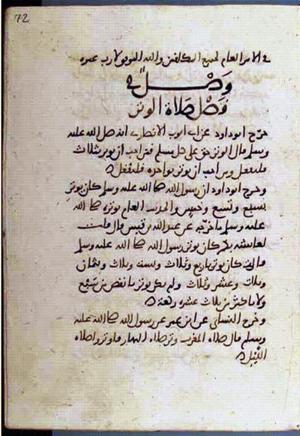 72
الامر العام لجميع المكلفين والله الموفق لا رب غيره
وصل
فصل صلاة الوتر
خرج ابو داود عن ابي ايوب الانصاري انه صلى الله عليه
وسلم قال الوتر حق على كل مسلم فمن احب ان يوتر بثلاث
فليفعل ومن احب ان يوتر بواحدة فليفعل
وخرج ابو داود ان رسول الله صلى الله عليه وسلم كان يوتر
بسبع وتسع وخمس والحديث العام بوتره صلى الله
عليه وسلم ما خرجه عن عبد الله بن قيس قال قلت
لعائشة بكم كان يوتر رسول الله صلى الله عليه وسلم
قالت كان يوتر باربع وثلاث وست وثلاث وثمان
وثلاث وعشر وثلاث ولم يكن يوتر بانقص من سبع
ولا باكثر من ثلاث عشرة ركعة
وخرج النسائي عن ابن عمر عن رسول الله صلى الله عليه
وسلم قال صلاة المغرب وتر صلاة النهار فاوتروا صلاة
الليل